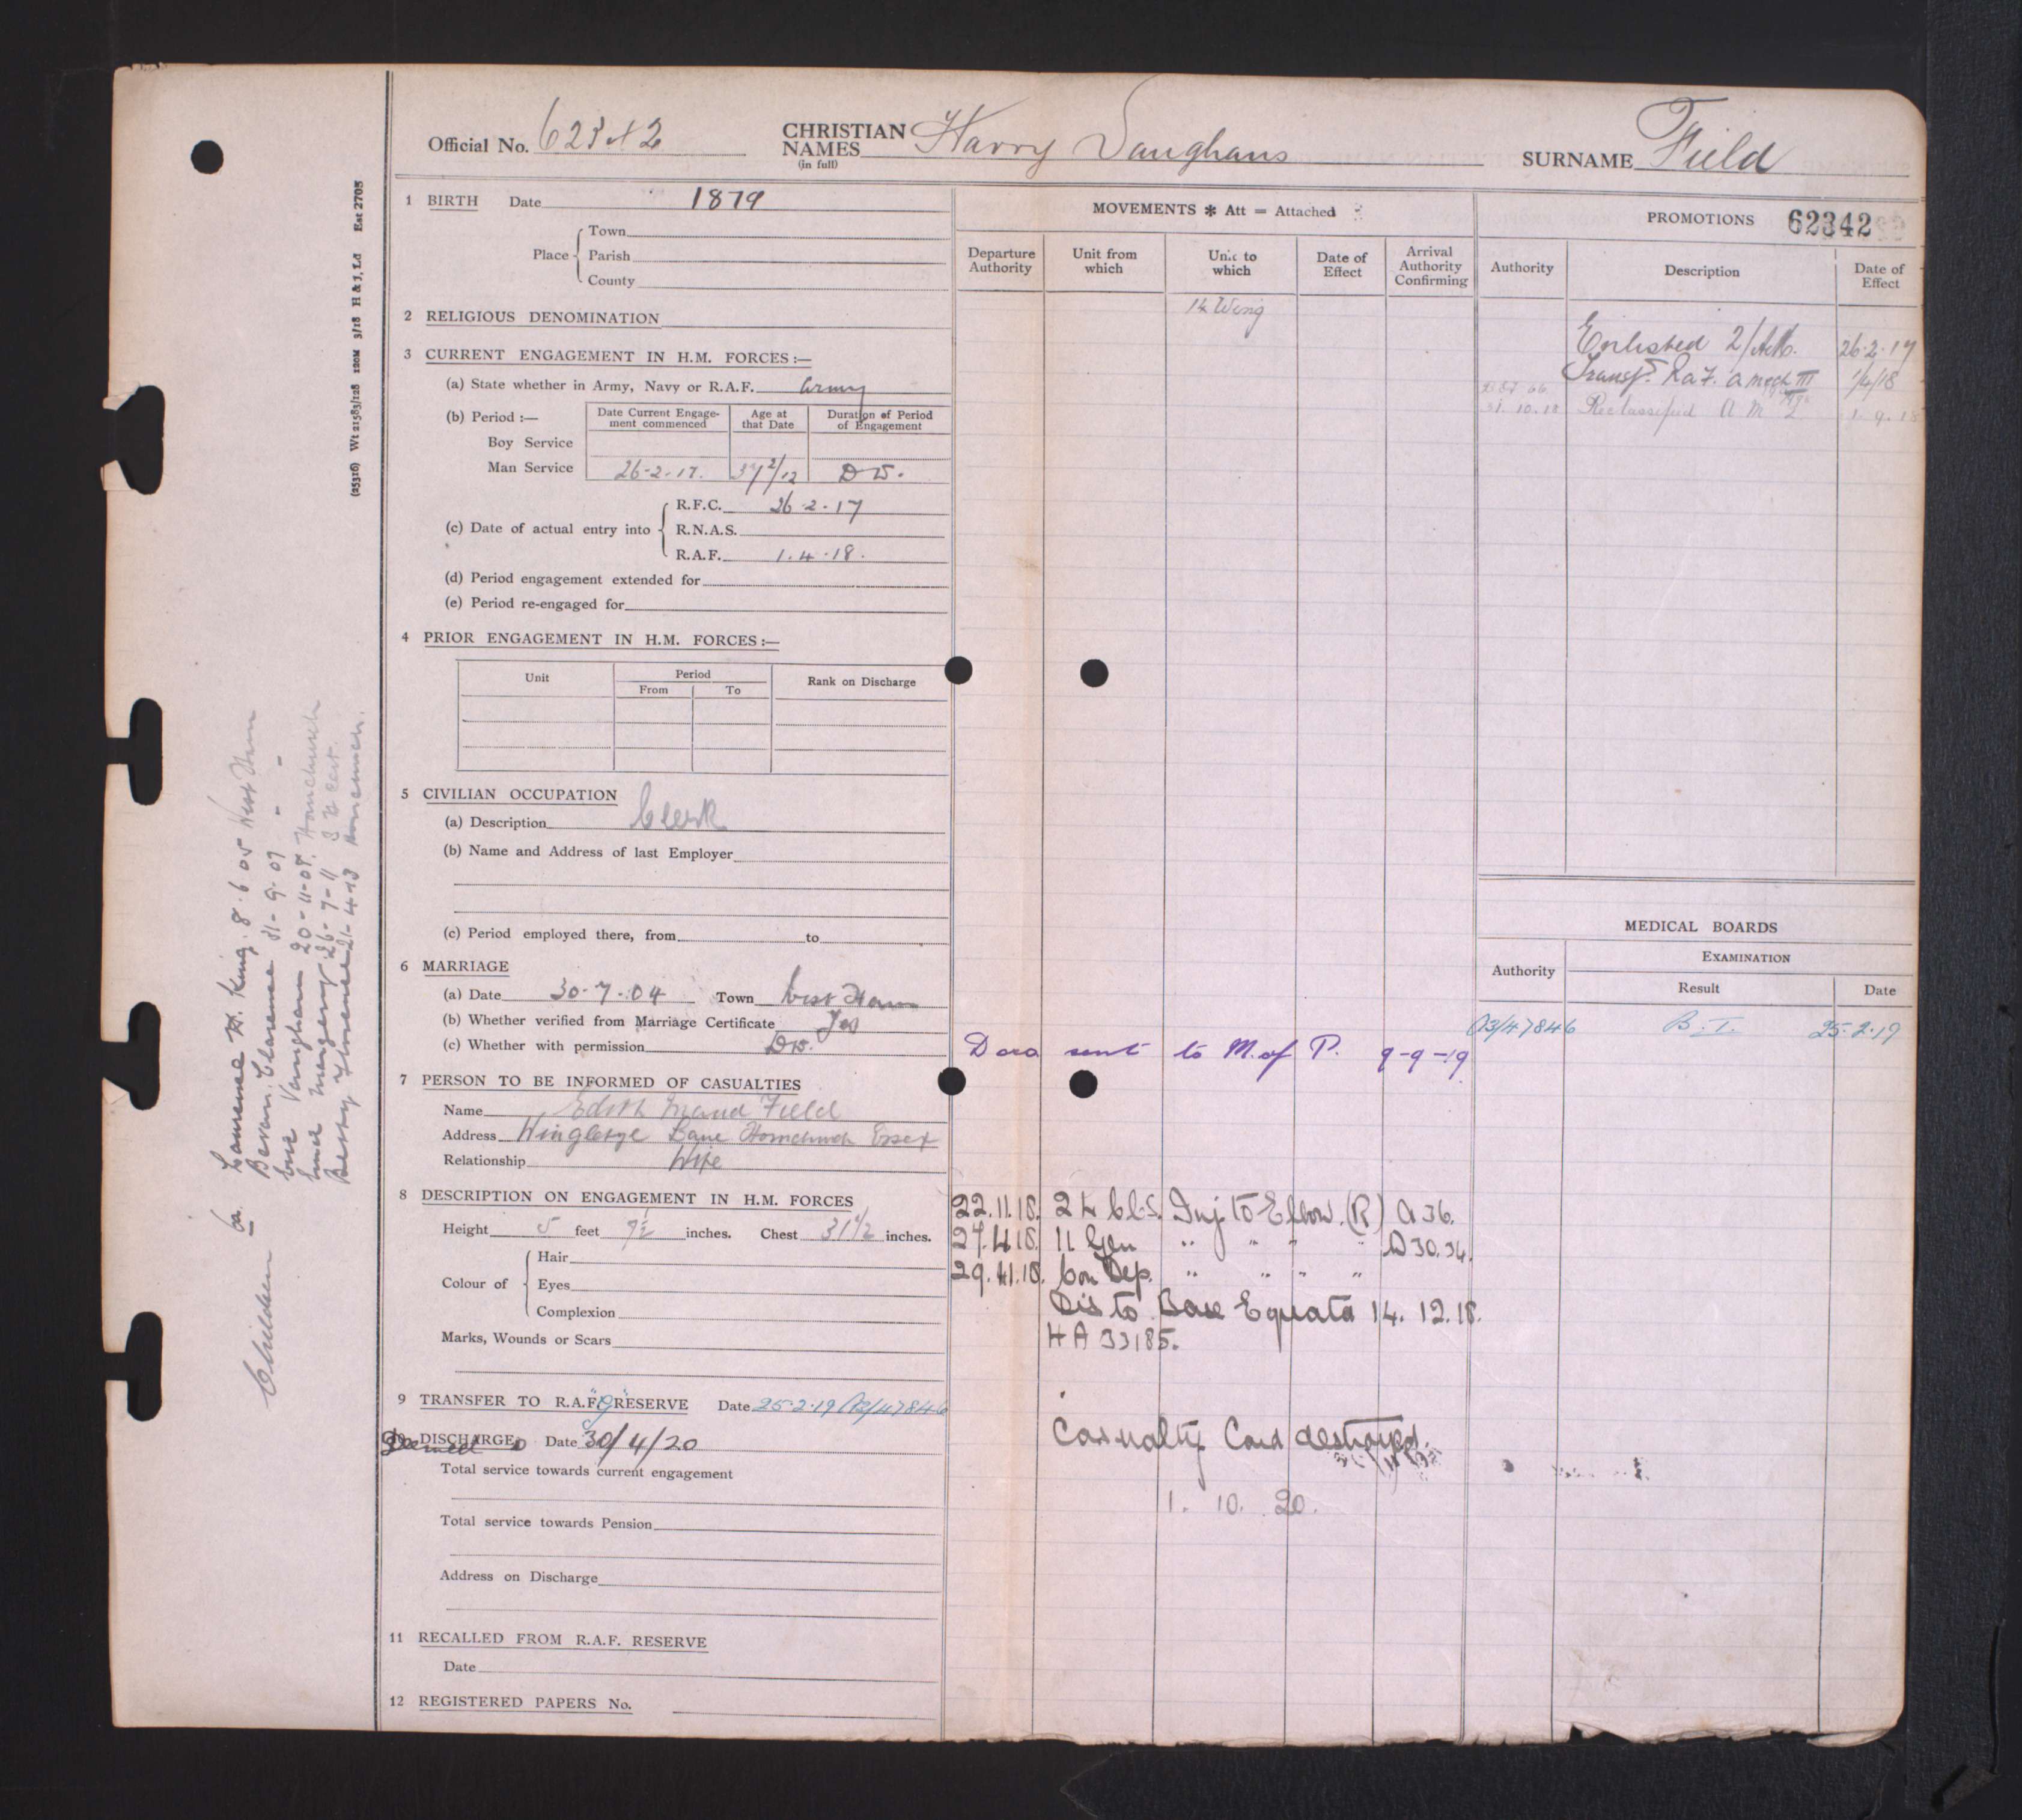 Official No. 62342 CHRISTIAN NAMES (in full) Harry Vaughans SURNAME Field
1 BIRTH Date 1879
Place Town
Parish
County
2 RELIGIOUS DENOMINATION
3 CURRENT ENGAGEMENT IN H.M. FORCES :—
(a) State whether in Army, Navy or R.A.F. Army
(b) Period :— Date Current Engage- Age at Duration of Period
ment commenced that Date of Engagement
Boy Service
Man Service 26-2-17. 37 2/12 D W.
(c) Date of actual entry into R.F.C. 26-2-17
R.N.A.S.
R.A.F. 1.4.18.
(d) Period engagement extended for
(e) Period re-engaged for
4 PRIOR ENGAGEMENT IN H.M. FORCES :—
Unit Period Rank on Discharge
From To
5 CIVILIAN OCCUPATION
(a) Description Clerk
(b) Name and Address of last Employer
(c) Period employed there, from to
6 MARRIAGE
(a) Date 30-7-04 Town West Ham
(b) Whether verified from Marriage Certificate Yes
(c) Whether with permission DW.
7 PERSON TO BE INFORMED OF CASUALTIES
Name Edith Maud Field
Address Wingletye Lane Hornchurch Essex
Relationship Wife
8 DESCRIPTION ON ENGAGEMENT IN H.M. FORCES
Height 5 feet 9½ inches. Chest 31½ inches.
Colour of Hair
Eyes
Complexion
Marks, Wounds or Scars
9 TRANSFER TO R.A.F. "G" RESERVE Date 25-2-19 03/47846
Deemed
10 DISCHARGED Date 30/4/20
Total service towards current engagement
Total service towards Pension
Address on Discharge
11 RECALLED FROM R.A.F. RESERVE
Date
12 REGISTERED PAPERS No.
MOVEMENTS * Att = Attached
Departure Authority Unit from which Unit to which Date of Effect Arrival Authority Confirming
14 Wing
Docs sent to M. of P. 9-9-19
22.11.18. 24 C.C.S. Inj. to Elbow. (R) A36.
27.11.18. 11 Gen " " " " D30.34.
29.11.18. Con Dep. " " " "
Dis to Base 14.12.18.
HA 33185.
Casualty Card destroyed.
1. 10. 20.
PROMOTIONS 62342
Authority Description Date of Effect
Enlisted 2/AM. 26-2-17
Transf. R.a.F. a mech III 1/4/18
31.10.18 Reclassified A M 1.9.18
MEDICAL BOARDS
Authority EXAMINATION
Result Date
03/47846 B.I. 25-2-19
(25316) Wt 21583/128 120M 3/18 H & J, Ld Est 2705
Children
Laurence W. King 8.6.05 West Ham
Bevan Clarence 9-07 " "
Vaughan 20-11-08. Hornchurch
26-7-11 B Cert.
Betty Florence 21-4-13 Hornchurch.